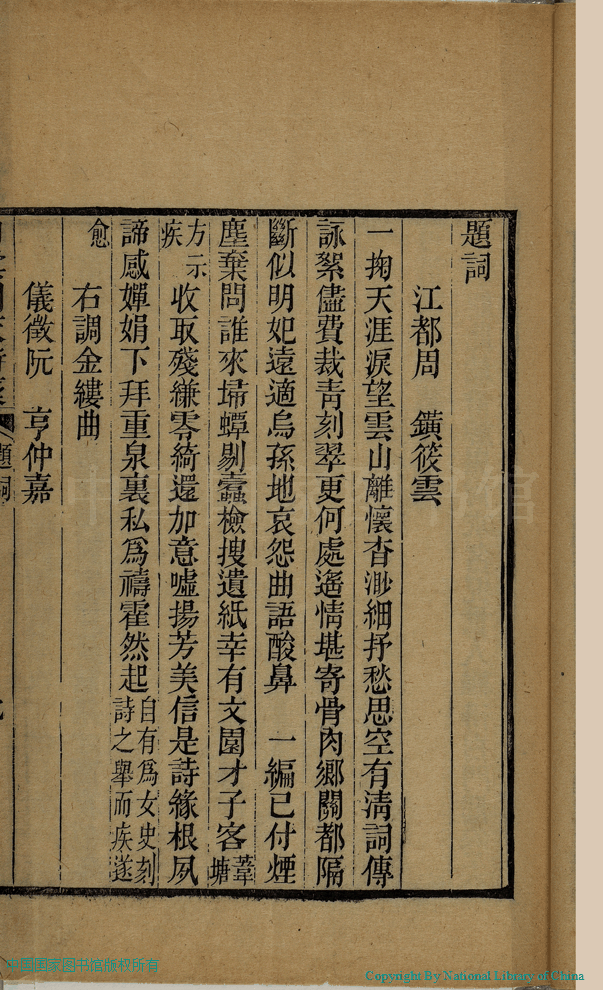 題詞
江都周 鐄筱雲
一掬天涯淚望雲山離懷杳渺細抒愁思空有淸詞傳
詠絮儘費裁靑刻翠更何處遙情堪寄骨肉鄉關都隔
斷似明妃遠適烏孫地哀怨曲語酸鼻 一編已付煙
塵棄問誰來埽蟫剔蠹檢搜遺紙幸有文園才子客葦塘
方示疾收取殘縑零綺還加意噓揚芳美信是詩緣根夙
諦感嬋娟下拜重泉裏私爲禱霍然起自有爲女史刻詩之舉而疾遂
愈
右調金縷曲
儀徵阮 亨仲嘉
題詞
中国国家图书馆版权所有
Copyright By National Library of China